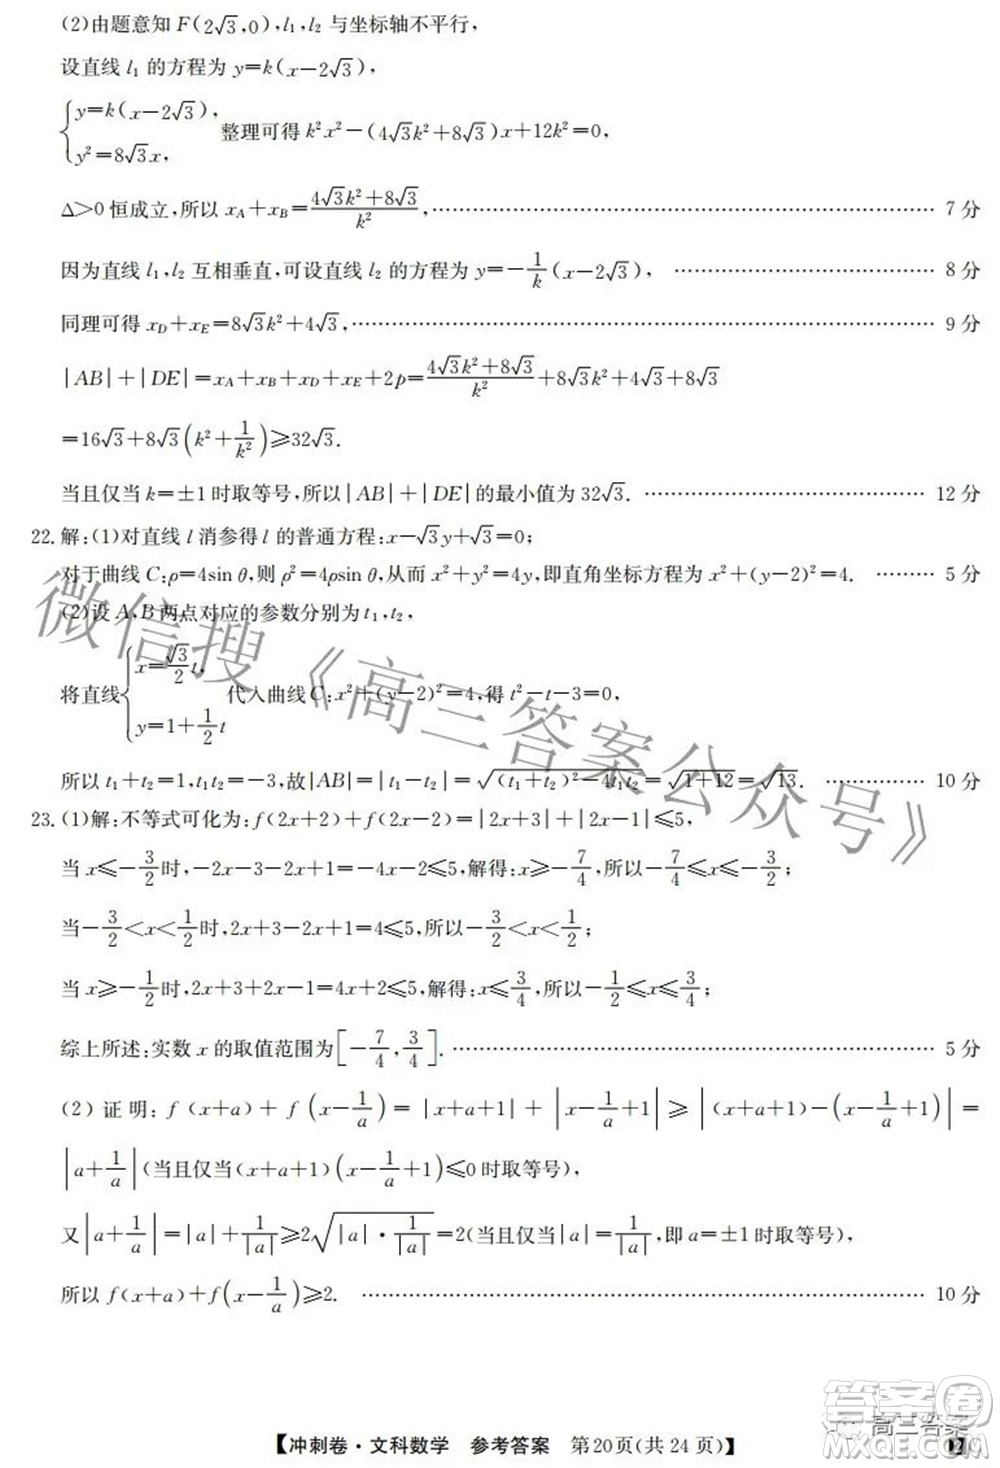 (2)由题意知 F(2√3,0),l₁,l₂ 与坐标轴不平行,
设直线 l₁ 的方程为 y=k(x-2√3),
{y=k(x-2√3), y²=8√3x, 整理可得 k²x²-(4√3k²+8√3)x+12k²=0,
Δ>0 恒成立,所以 x_A+x_B=(4√3k²+8√3)/k²,………… 7 分
因为直线 l₁,l₂ 互相垂直,可设直线 l₂ 的方程为 y=-1/k(x-2√3), ………… 8 分
同理可得 x_D+x_E=8√3k²+4√3,………… 9 分
|AB|+|DE|=x_A+x_B+x_D+x_E+2p=(4√3k²+8√3)/k²+8√3k²+4√3+8√3
=16√3+8√3(k²+1/k²)≥32√3.
当且仅当 k=±1 时取等号,所以|AB|+|DE|的最小值为 32√3. ………… 12 分
22.解:(1)对直线 l 消参得 l 的普通方程:x-√3y+√3=0;
对于曲线 C:ρ=4sin θ,则 ρ²=4ρsin θ,从而 x²+y²=4y,即直角坐标方程为 x²+(y-2)²=4. ……… 5 分
(2)设 A,B 两点对应的参数分别为 t₁,t₂,
将直线{x=√3/2t, y=1+1/2t 代入曲线 C:x²+(y-2)²=4,得 t²-t-3=0,
所以 t₁+t₂=1,t₁t₂=-3,故|AB|=|t₁-t₂|=√((t₁+t₂)²-4t₁t₂)=√(1+12)=√13. ………… 10 分
23.(1)解:不等式可化为:f(2x+2)+f(2x-2)=|2x+3|+|2x-1|≤5,
当 x≤-3/2时,-2x-3-2x+1=-4x-2≤5,解得:x≥-7/4,所以-7/4≤x≤-3/2;
当-3/2<x<1/2时,2x+3-2x+1=4≤5,所以-3/2<x<1/2;
当 x≥-1/2时,2x+3+2x-1=4x+2≤5,解得:x≤3/4,所以-1/2≤x≤3/4;
综上所述:实数 x 的取值范围为[-7/4,3/4]. ………… 5 分
(2)证明:f(x+a)+f(x-1/a)=|x+a+1|+|x-1/a+1|≥|(x+a+1)-(x-1/a+1)|=
|a+1/a|(当且仅当(x+a+1)(x-1/a+1)≤0 时取等号),
又|a+1/a|=|a|+1/|a|≥2√(|a|·1/|a|)=2(当且仅当|a|=1/|a|,即 a=±1 时取等号),
所以 f(x+a)+f(x-1/a)≥2. ………… 10 分
微信搜《高三答案公众号》
答案卷
高三答案
【冲刺卷·文科数学 参考答案 第20页(共24页)】